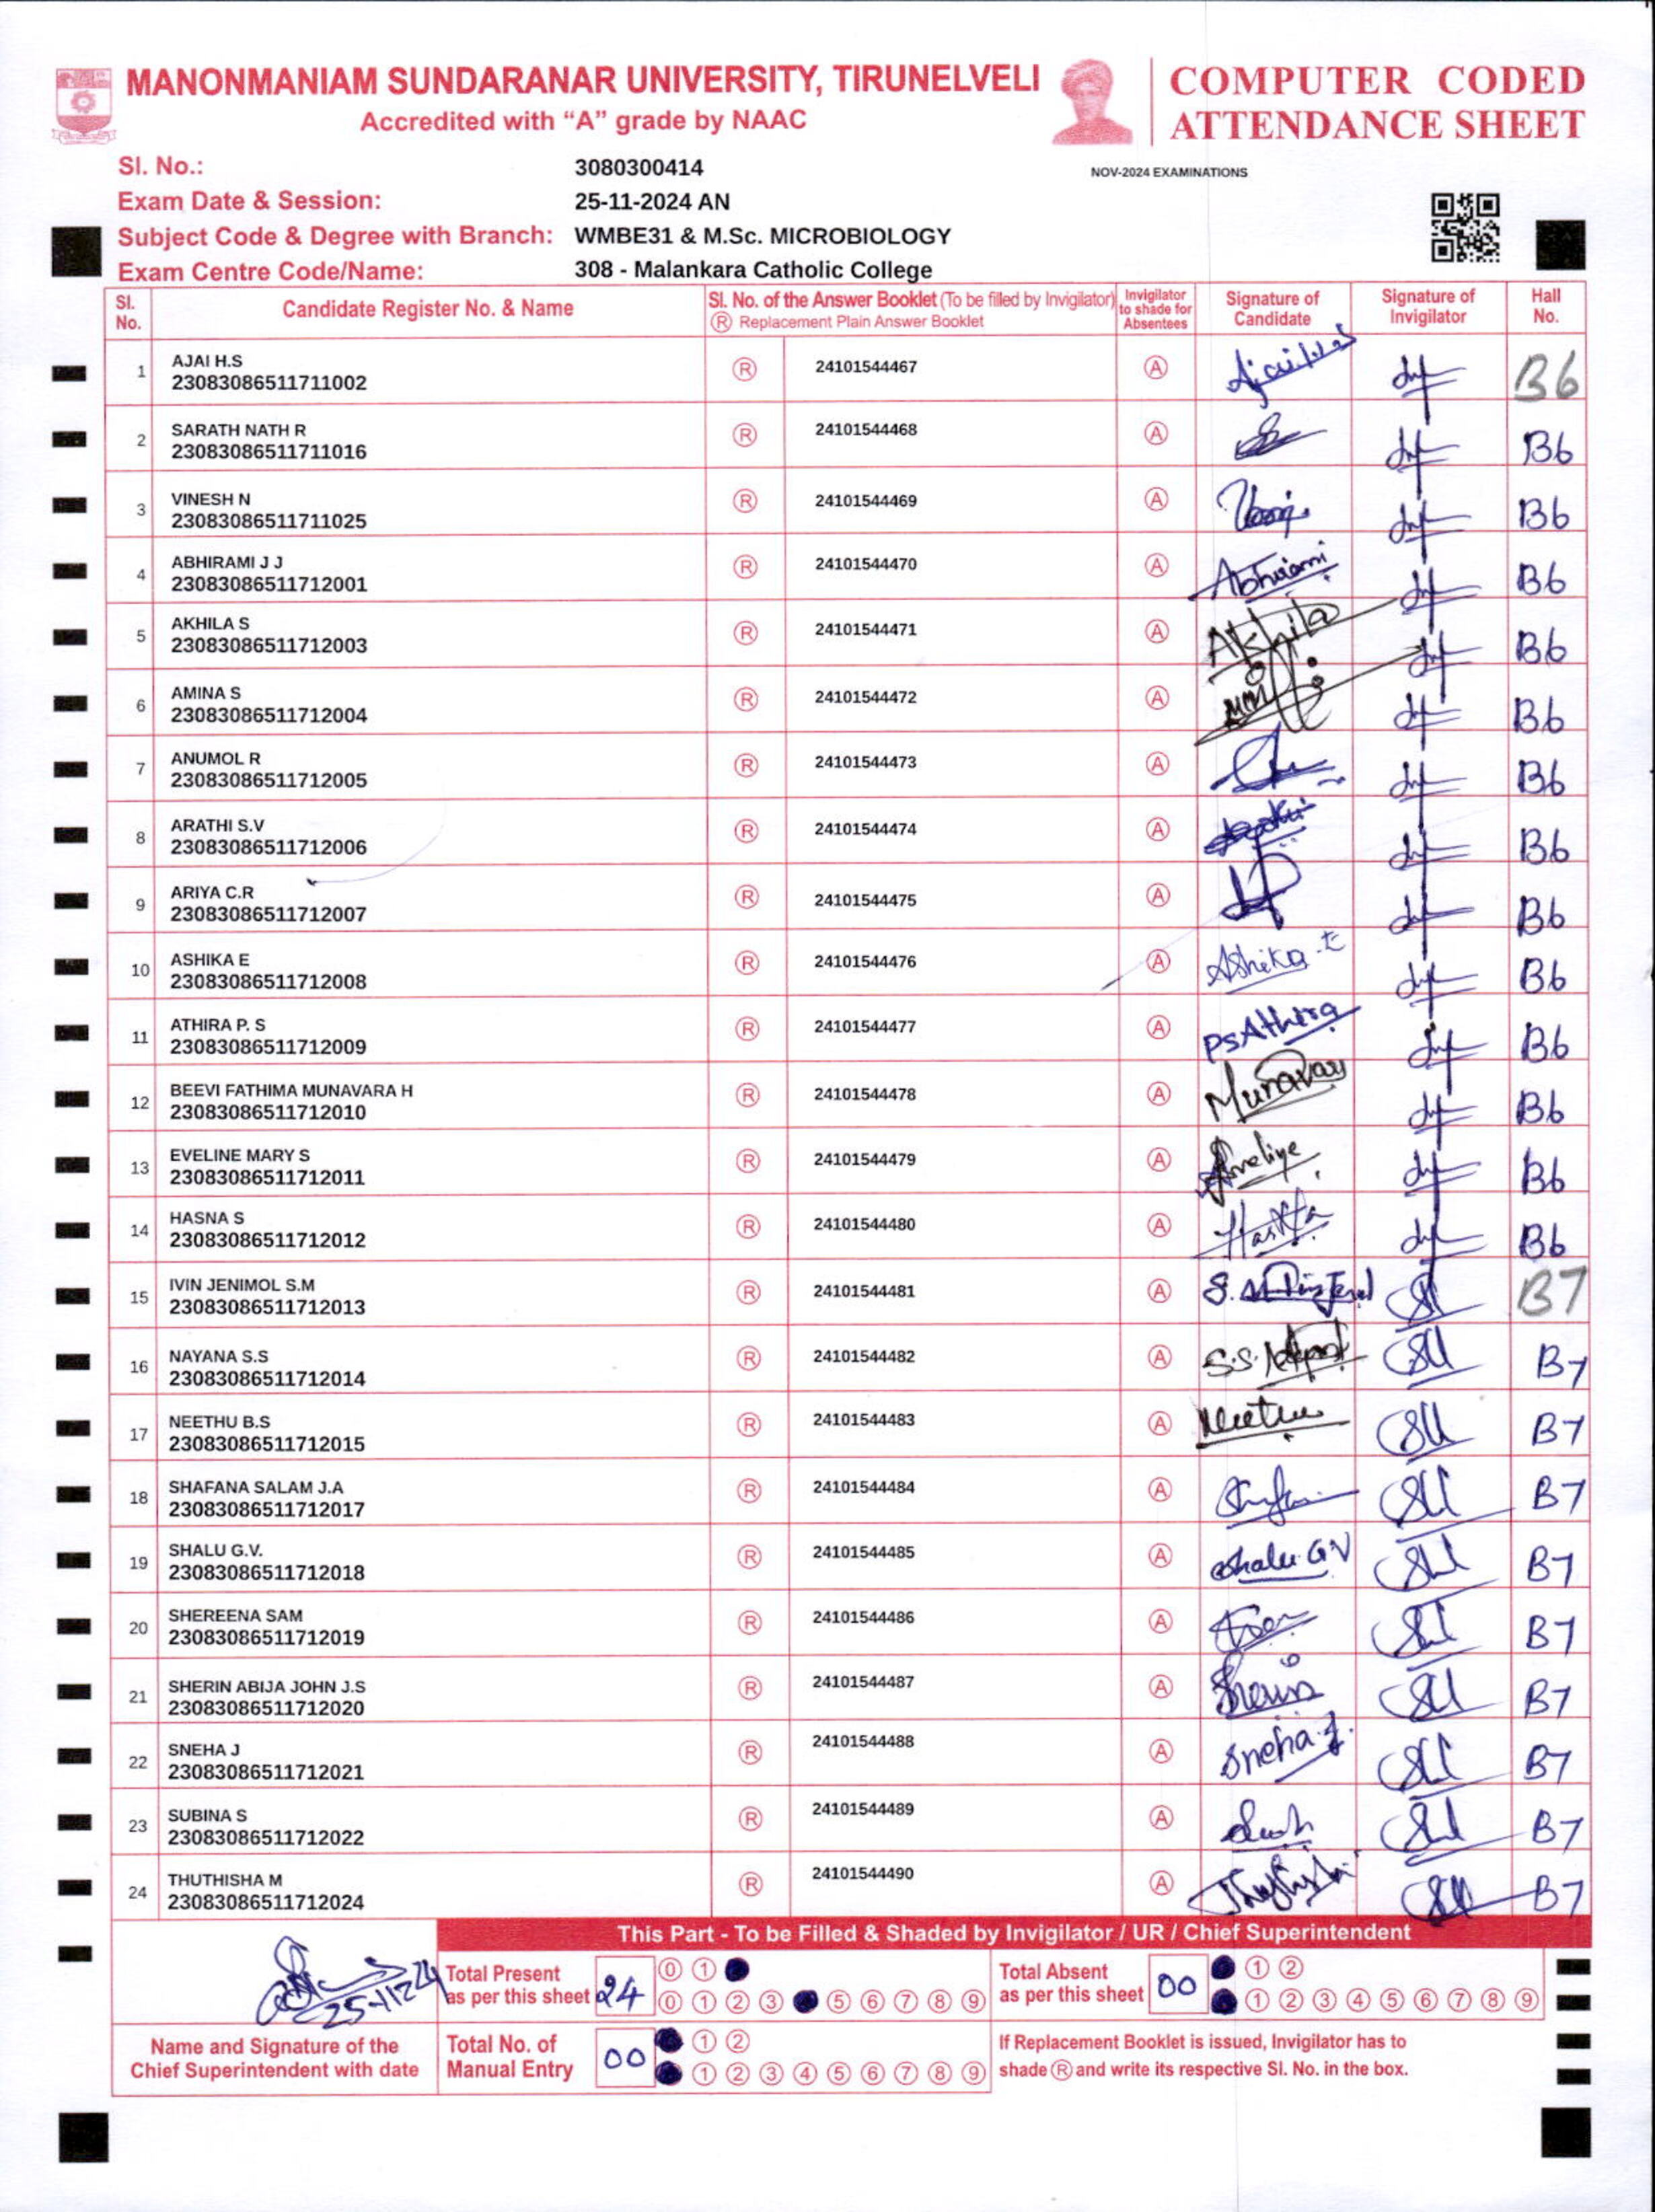 MANONMANIAM SUNDARANAR UNIVERSITY, TIRUNELVELI
Accredited with “A” grade by NAAC
COMPUTER CODED
ATTENDANCE SHEET
Sl. No.: 3080300414
NOV-2024 EXAMINATIONS
Exam Date & Session: 25-11-2024 AN
Subject Code & Degree with Branch: WMBE31 & M.Sc. MICROBIOLOGY
Exam Centre Code/Name: 308 - Malankara Catholic College
Sl. No. Candidate Register No. & Name Sl. No. of the Answer Booklet (To be filled by Invigilator) Ⓡ Replacement Plain Answer Booklet Invigilator to shade for Absentees Signature of Candidate Signature of Invigilator Hall No.
1 AJAI H.S Ⓡ 24101544467 Ⓐ B6
23083086511711002
2 SARATH NATH R Ⓡ 24101544468 Ⓐ B6
23083086511711016
3 VINESH N Ⓡ 24101544469 Ⓐ B6
23083086511711025
4 ABHIRAMI J J Ⓡ 24101544470 Ⓐ Abhirami B6
23083086511712001
5 AKHILA S Ⓡ 24101544471 Ⓐ Akhila B6
23083086511712003
6 AMINA S Ⓡ 24101544472 Ⓐ B6
23083086511712004
7 ANUMOL R Ⓡ 24101544473 Ⓐ B6
23083086511712005
8 ARATHI S.V Ⓡ 24101544474 Ⓐ B6
23083086511712006
9 ARIYA C.R Ⓡ 24101544475 Ⓐ B6
23083086511712007
10 ASHIKA E Ⓡ 24101544476 Ⓐ Ashika E B6
23083086511712008
11 ATHIRA P. S Ⓡ 24101544477 Ⓐ PSAthira B6
23083086511712009
12 BEEVI FATHIMA MUNAVARA H Ⓡ 24101544478 Ⓐ B6
23083086511712010
13 EVELINE MARY S Ⓡ 24101544479 Ⓐ B6
23083086511712011
14 HASNA S Ⓡ 24101544480 Ⓐ B6
23083086511712012
15 IVIN JENIMOL S.M Ⓡ 24101544481 Ⓐ B7
23083086511712013
16 NAYANA S.S Ⓡ 24101544482 Ⓐ B7
23083086511712014
17 NEETHU B.S Ⓡ 24101544483 Ⓐ Neethu B7
23083086511712015
18 SHAFANA SALAM J.A Ⓡ 24101544484 Ⓐ B7
23083086511712017
19 SHALU G.V. Ⓡ 24101544485 Ⓐ Shalu G.V B7
23083086511712018
20 SHEREENA SAM Ⓡ 24101544486 Ⓐ B7
23083086511712019
21 SHERIN ABIJA JOHN J.S Ⓡ 24101544487 Ⓐ Sherin B7
23083086511712020
22 SNEHA J Ⓡ 24101544488 Ⓐ Sneha.J. B7
23083086511712021
23 SUBINA S Ⓡ 24101544489 Ⓐ B7
23083086511712022
24 THUTHISHA M Ⓡ 24101544490 Ⓐ B7
23083086511712024
This Part - To be Filled & Shaded by Invigilator / UR / Chief Superintendent
25-11-24
Name and Signature of the
Chief Superintendent with date
Total Present
as per this sheet 24
0 1
0 1 2 3 5 6 7 8 9
Total Absent
as per this sheet 00
1 2
1 2 3 4 5 6 7 8 9
Total No. of
Manual Entry 00
1 2
1 2 3 4 5 6 7 8 9
If Replacement Booklet is issued, Invigilator has to
shade Ⓡ and write its respective Sl. No. in the box.